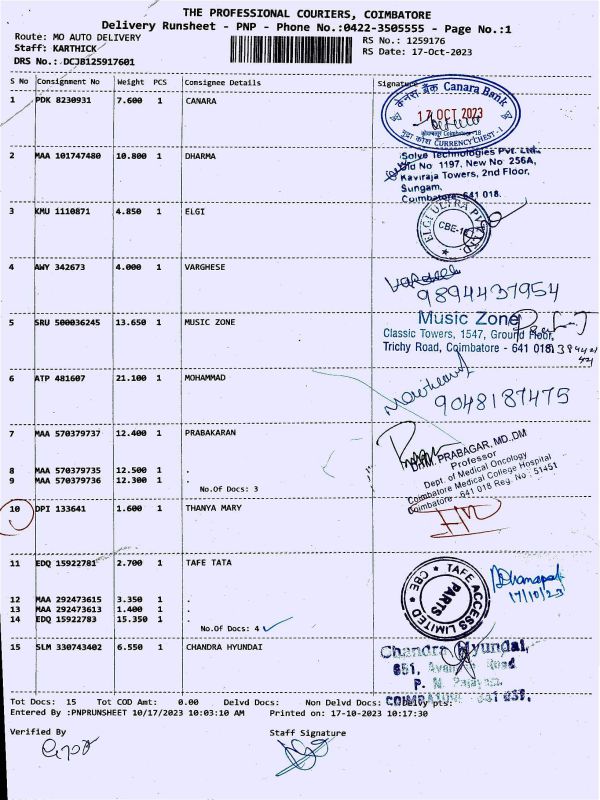 THE PROFESSIONAL COURIERS, COIMBATORE
Delivery Runsheet - PNP - Phone No.:0422-3505555 - Page No.:1
Route: MO AUTO DELIVERY
RS No.: 1259176
Staff: KARTHICK
RS Date: 17-Oct-2023
DRS No.: DCJB125917601
S No Consignment No Weight PCS Consignee Details Signature
1 PDK 8230931 7.600 1 CANARA
केनरा बैंक Canara Bank
17 OCT 2023
CURRENCY CHEST - I
2 MAA 101747480 10.800 1 DHARMA
Solve Technologies Pvt. Ltd.,
Old No 1197, New No 256A,
Kaviraja Towers, 2nd Floor,
Sungam,
Coimbatore-641 018.
3 KMU 1110871 4.850 1 ELGI
ELGI ULTRA PVT LTD
CBE-18
4 AWY 342673 4.000 1 VARGHESE
9894437954
5 SRU 500036245 13.650 1 MUSIC ZONE
Music Zone
Classic Towers, 1547, Ground Floor,
Trichy Road, Coimbatore - 641 018
6 ATP 481607 21.100 1 MOHAMMAD
9048187475
7 MAA 570379737 12.400 1 PRABAKARAN
8 MAA 570379735 12.500 1 .
9 MAA 570379736 12.300 1 .
No.Of Docs: 3
PRABAGAR, MD.,DM
Professor
Dept. of Medical Oncology
Coimbatore Medical College Hospital
Coimbatore - 641 018 Reg. No : 51451
10 DPI 133641 1.600 1 THANYA MARY
11 EDQ 15922781 2.700 1 TAFE TATA
12 MAA 292473615 3.350 1 .
13 MAA 292473614 1.400 1 .
14 EDQ 15922783 15.350 1 .
No.Of Docs: 4
TAFE ACCESS LIMITED
PARTS
CBE
17/10/23
15 SLM 330743402 6.550 1 CHANDRA HYUNDAI
Chandra Hyundai,
Road
P. N.
COIMBATORE
Tot Docs: 15 Tot COD Amt: 0.00 Delvd Docs: Non Delvd Docs:
Entered By :PNPRUNSHEET 10/17/2023 10:03:10 AM Printed on: 17-10-2023 10:17:30
Verified By
Staff Signature